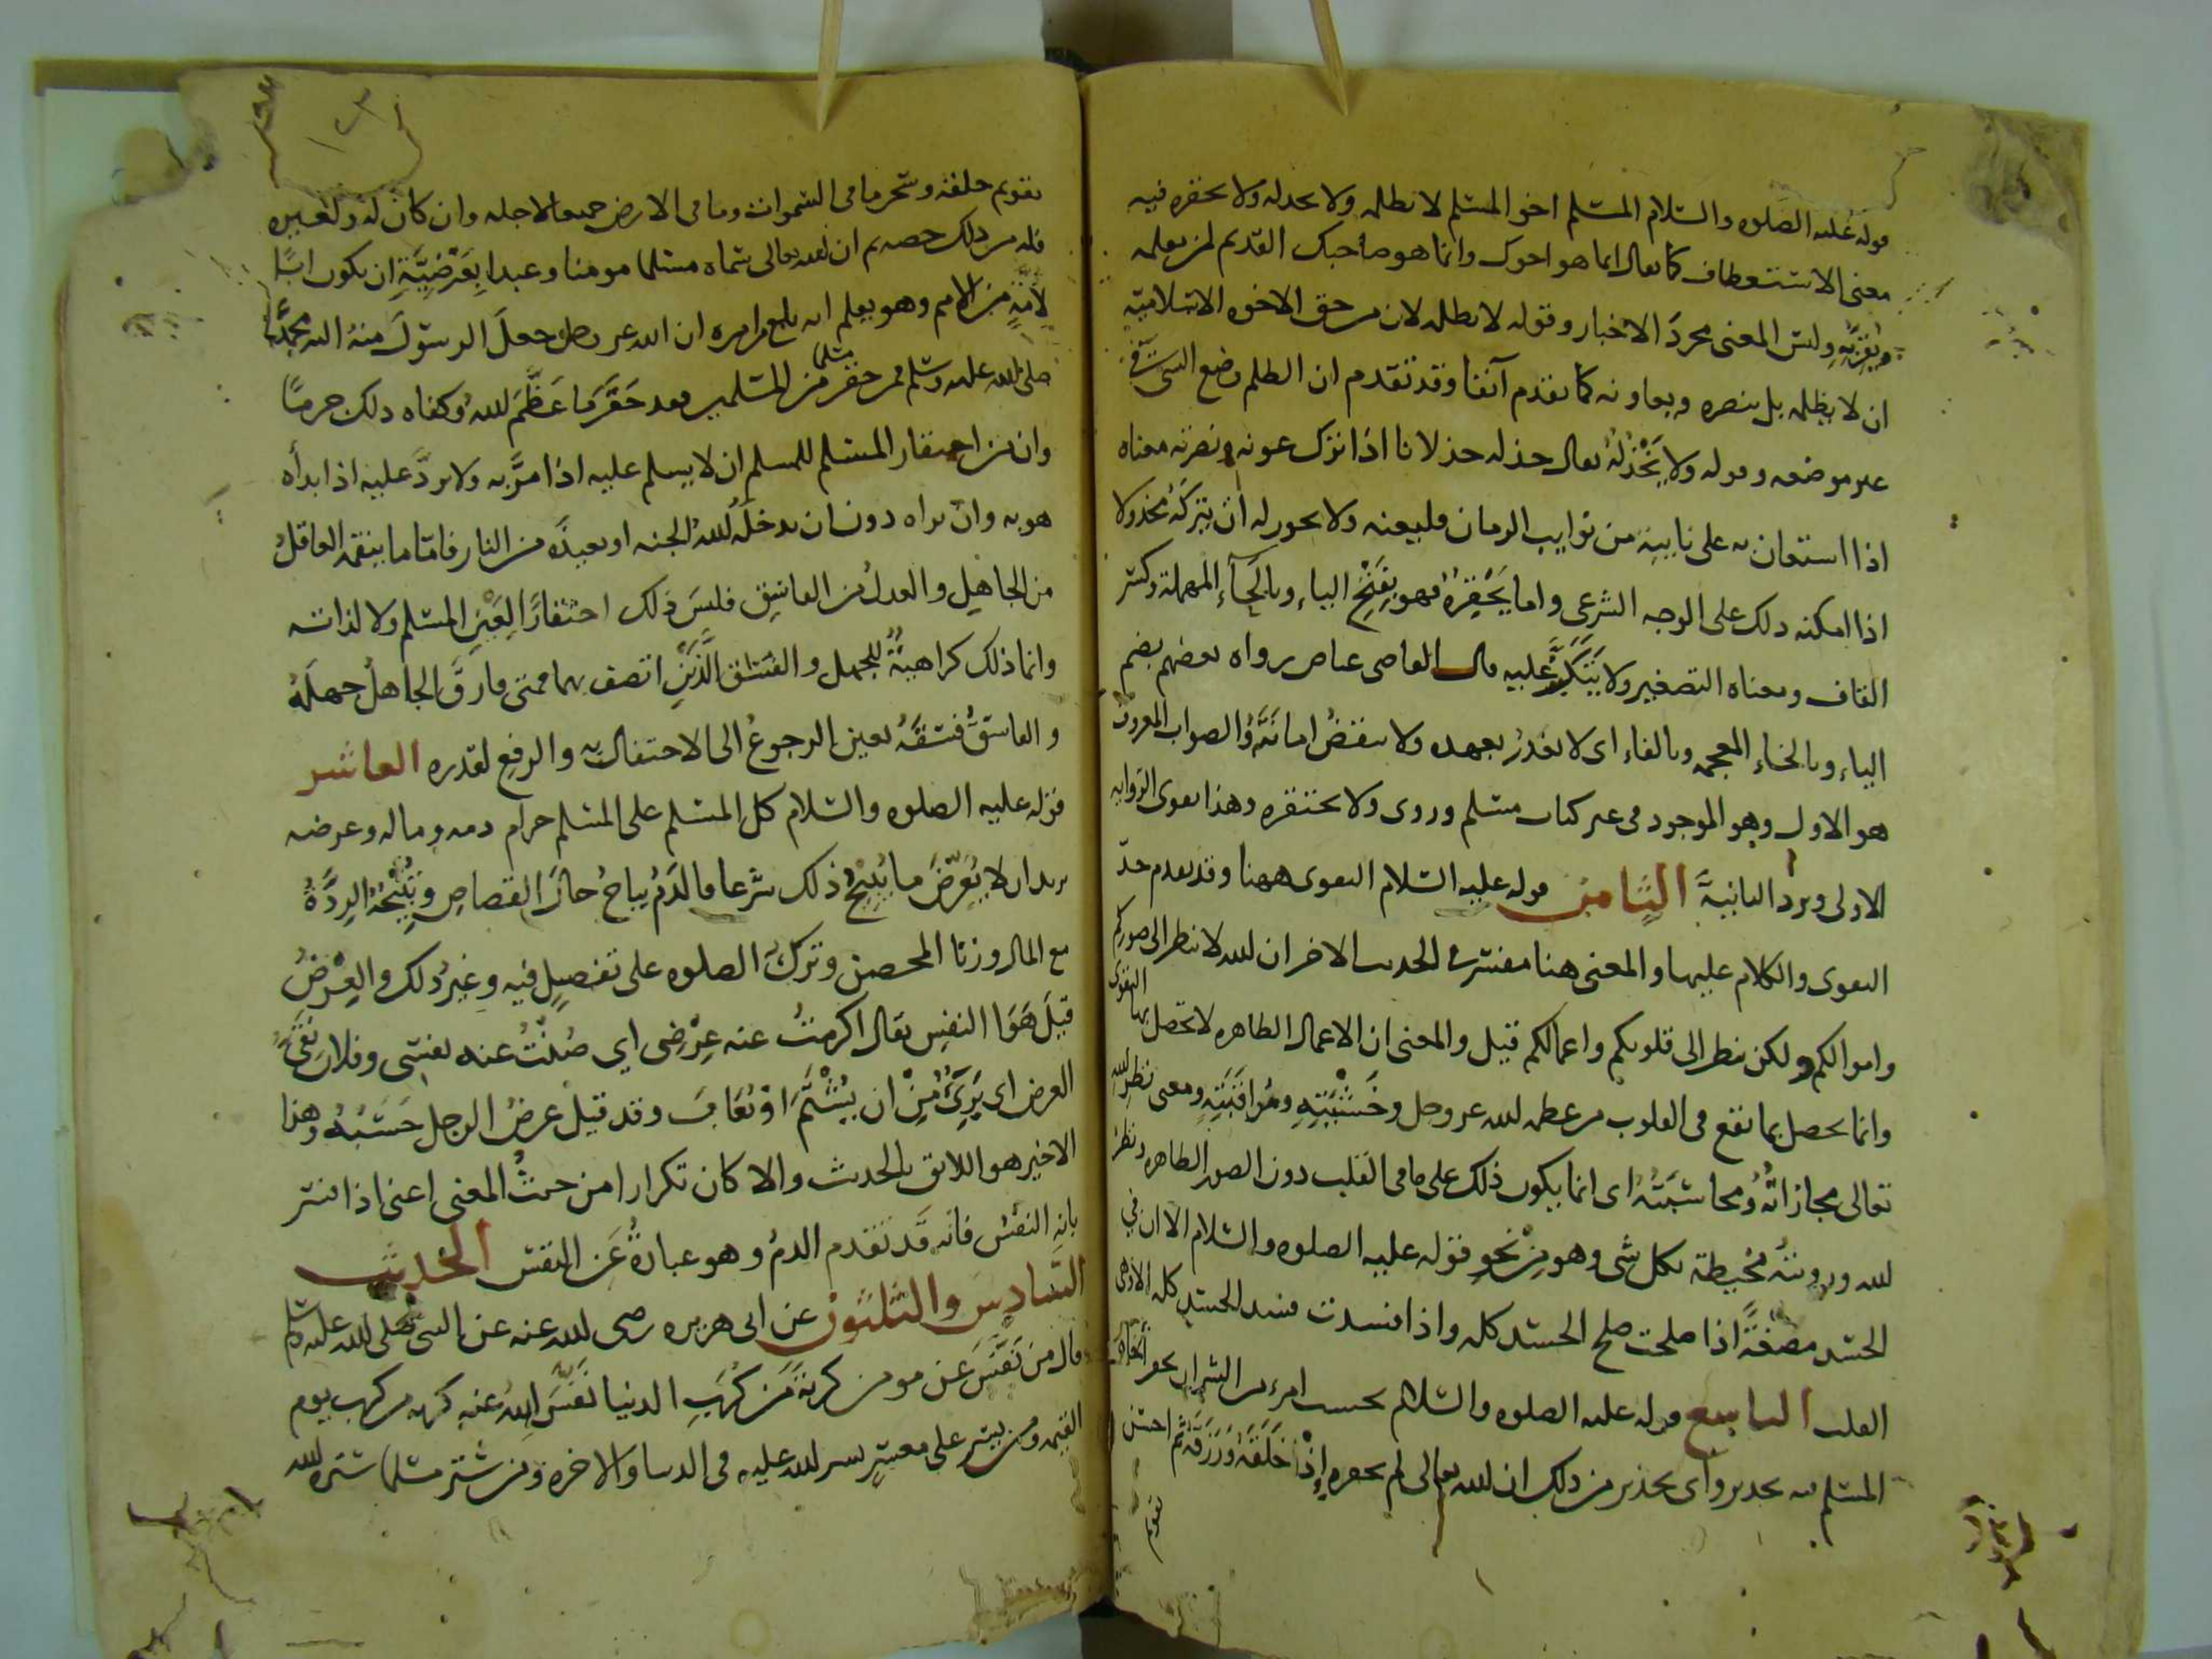 قوله عليه الصلوه والسلام المسلم اخو المسلم لا يظلمه ولا يخذله ولا يحقره فيه
معنى الاستعطاف كما يقال انما هو اخوك وانما هو صاحبك القديم لمن يعلمه
وليس المعنى مجرد الاخبار وقوله لا يظلمه لان من حق الاخوه الاسلامية
ان لا يظلمه بل ينصره ويعاونه كما تقدم آنفا وقد تقدم ان الظلم وضع الشي في
غير موضعه وقوله ولا يَخْذُلُهُ يقال خذله خذلانا اذا ترك عونه ونصرته معناه
اذا استعان به على نايبة من نوايب الزمان فليعنه ولا يجوز له ان يتركه مخذولا
اذا امكنه ذلك على الوجه الشرعى واما يَحْقِرُهُ فهو بِفَتْحِ الياءِ وبالحَآءِ المهملة وكسر
القاف ومعناه التصغير ولا يَتَكَبَّر عليه قال القاضى عياض رواه بعضهم بضم
الياءِ وبالخاءِ المعجمه وبالفاءِ اى لا يغدرُ بعهده ولا ينقضُ امانَتَهُ والصواب المعروف
هو الاول وهو الموجود فى غير كتاب مسلم وروى ولا يحتقره وهذا يقوى الروايه
الاولى ويرد الثانيةَ الثامن قوله عليه السلام التقوى ههنا وقد تقدم حدّ
التقوى والكلام عليها والمعنى هنا مفسر فى الحديث الاخر ان الله لا ينظر الى صوركم
واموالكم ولكن ينظر الى قلوبكم واعمالكم قيل والمعنى ان الاعمال الظاهره لا تحصل بها التقوى
وانما يحصل بما يقع فى القلوب من عظمه الله عز وجل وخَشْيَتِهِ ومُراقَبَتِهِ ومعنى نظر الله
تعالى مجازاتُهُ ومحاسَبَتُهُ اى انما يكون ذلك على ما فى القلب دون الصور الظاهره ونظر
الله ورويته مُحيطة بكل شى وهو مِنْ نَحوِ قوله عليه الصلوه والسلام الا ان في
الجسد مضغةً اذا صلحت صلح الجسد كله واذا فسدت فسد الجسد كله الا وهى
القلب التاسع قوله عليه الصلوه والسلام بحسب امرء من الشر ان يحقر اخاه
المسلم فيه تحذير واى تحذير من ذلك ان الله تعالى لم يحقره إِذْ خَلَقَهُ وَرَزَقَهُ ثم احسن
تقويم
تقويم خلقه وسخر ما فى السموات وما فى الارض جميعا لاجله وان كان له ولغيره
فله من ذلك حصه ثم ان الله تعالى سماه مسلما مومنا وعبدا
من الامم وهو يعلم ان الله عز وجل جعلَ الرسولَ منهُ اليه محمدًا
صلى الله عليه وسلم فمن حقر مسلما من المسلمين فقد حَقَّرَ ما عَظَّمَ اللهُ وكفاه ذلك جرمًا
وان من احتقار المسلم للمسلم ان لا يسلم عليه اذا مرَّ به ولا يردَّ عليه اذا بدأه
هو به وان يراه دون ان يدخلَهُ اللهُ الجنه او يعيذَه من النار فامّا ما ينقمه العاقلُ
من الجاهِل والعدلُ من الفاسِقِ فليسَ ذلك احتقارًا لِعَيْنِ المسلم ولا لذاته
وانما ذلك كراهيةٌ للجهل والفسق الَّذَيْنِ اتصف بهما فمتى فارقَ الجاهلُ جهلَهُ
والفاسقُ فسقَهُ تعين الرجوعُ الى الاحتفال به والرفع لقدره العاشر
قوله عليه الصلوه والسلام كل المسلم على المسلم حرام دمه وماله وعرضه
يريد ان لا يُعَرِّضَ ما يُبيحُ ذلك شرعا فالدَّمُ يباحُ حالَ القصاصِ وتُبيحُهُ الرِدَّةُ
مع المال وزنا المحصن وترك الصلوه على تفصيلٍ فيه وغيرُ ذلك والعِرْضُ
قيلَ هُوَا النفسِ يقال اكرمتُ عنه عِرْضى اي صُنْتُ عنه نفسى وفلان نَقِيُّ
العرض اى بَرِيٌ مِنْ ان يُشْتَمَ اوْ يُعَابَ وقد قيل عرضُ الرجل حَسَبُهُ وهذا
الاخير هو اللائق بالحديث والا كان تكرارا من حيثُ المعنى اعنى اذا فسر
بانه النفس فانه قَد تقدم الدمُ وهو عبارةٌ عَن النفس الحديث
السادس والثلثون عن ابى هريره رضى الله عنه عن النبى صلى الله عليه وسلم
قال من نَفَّسَ عَن مومن كربةً مِّن كُرَبِ الدنيا نَفَّسَ اللهُ عنه كربه من كرب يوم
القيمه ومن يسر على معسِرٍ يسر الله عليه فى الدنيا والاخره ومن ستر مسلما ستره الله